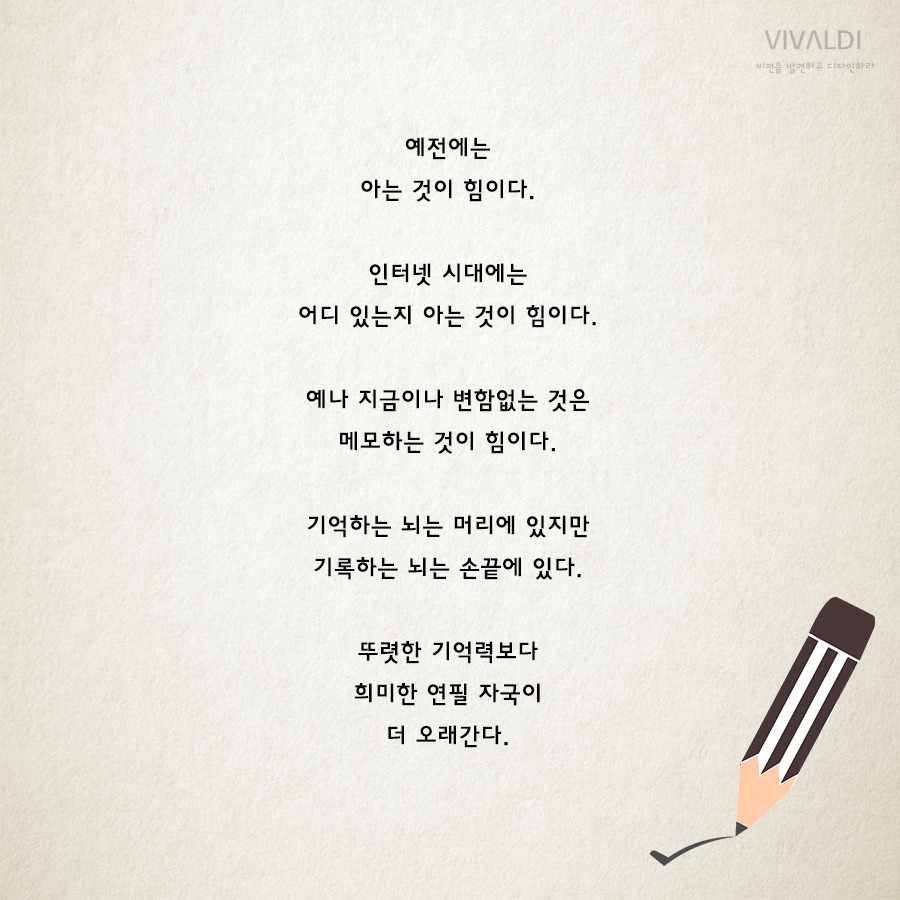 VIVALDI
비전을 발견하고 디자인하라
예전에는
아는 것이 힘이다.
인터넷 시대에는
어디 있는지 아는 것이 힘이다.
예나 지금이나 변함없는 것은
메모하는 것이 힘이다.
기억하는 뇌는 머리에 있지만
기록하는 뇌는 손끝에 있다.
뚜렷한 기억력보다
희미한 연필 자국이
더 오래간다.